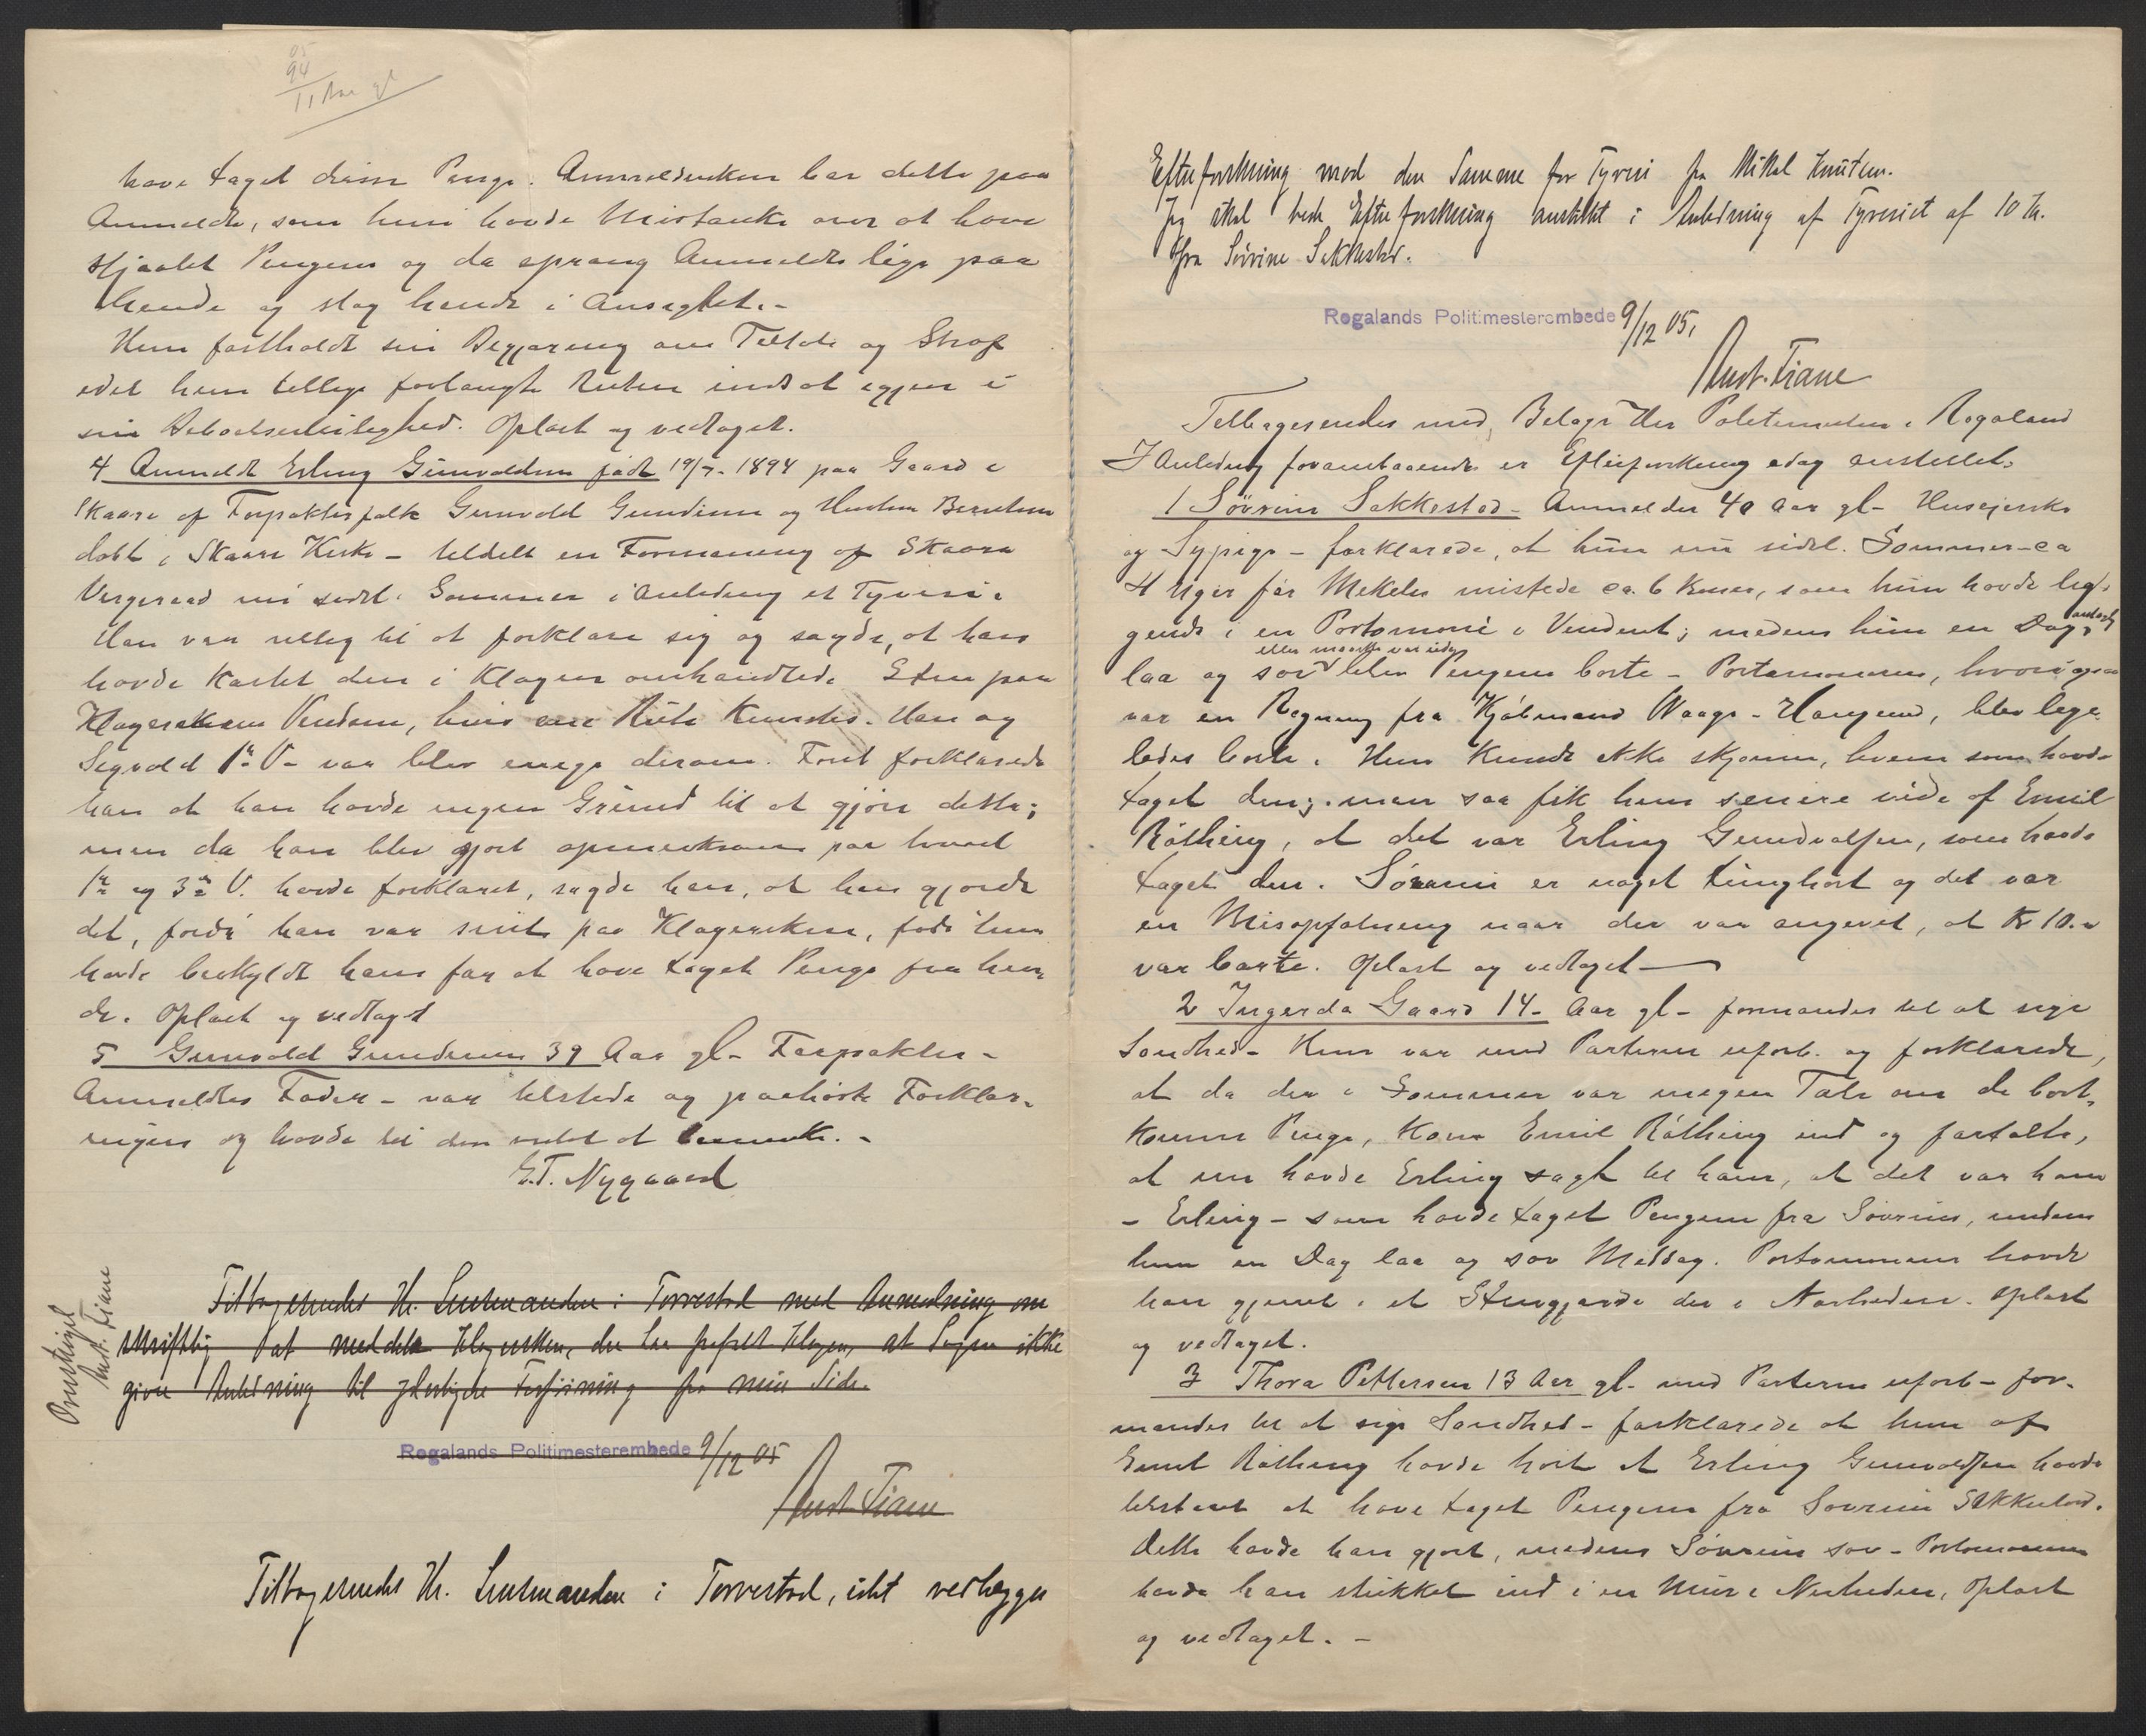 05
94
11 Aar gl
have taget disse Penge. Anmeldersken bar dette paa
Anmeldte, som hun havde Mistanke om at have
stjaalet Pengene og da sprang Anmeldte lige paa
hende og slog hende i Ansigtet.-
Hun fastholdt sin Begjæring om Tiltale og Straf
idet hun tillige forlangte Ruten indsat igjen i
sin Beboelsesleilighed. Oplæst og vedtaget.
4 Anmeldte Erling Gunvaldsen født 19/7- 1894 paa Gaard i
Skaare af Forpakterfolk Gunvald Gundersen og Hustru
døbt i Skaare Kirke - tildelt en Formaning af Skaare
Vergeraad nu sidst Sommer i Anledning et Tyveri.
Han var villig til at forklare sig og sagde, at han
havde kastet den i Klagen omhandlede Sten paa
Klagerskens Vindu, hvis ene Rute knustes. Han og
Sigvald 1ste V. var blev enige derom. Først forklarede
han at han havde ingen Grund til at gjøre dette;
men da han blev gjort opmerksom paa hvad
1ste og 3die V. havde forklaret, sagde han, at han gjorde
det, fordi han var sint paa Klagersken, fordi hun
havde beskyldt ham for at have taget Penge fra hen-
de. Oplæst og vedtaget
5 Gunvald Gundersen 39 Aar gl- Forpakter-
Anmeldtes Fader - var tilstede og paahørte Forklar-
ingen og havde til den intet at bemerke.-
G.T. Nygaard
Tilbagesendes Hr. Lensmanden i Torvestad med Anmodning om
skriftlig at meddele Klagersken, der har Klagen, at Sagen ikke
giver Anledning til yderligere Forføining fra min Side.
Rogalands Politimesterembede 9/12 05
Aust. Tiane
Overstrøget
Aust. Tiane
Tilbagesendes Hr. Lensmanden i Torvestad, idet vedlægges
Efterforskning mod den Samme for Tyveri fra Mikal Knutsen.
Jeg skal bede Efterforskning anstillet i Anledning af Tyveriet af 10 Kr.
fra Sørine Sakkestad.
Rogalands Politimesterembede 9/12 05,
Aust. Tiane
Tilbagesendes med Bilage Hr Politimesteren i Rogaland
I Anledning foranstaaende er Efterforskning idag anstillet.
1 Sørine Sakkestad - Anmelder 40 Aar gl- Huseierske
og Sypige - forklarede, at hun nu sidst Sommer - ca
4 Uger før Mikeli mistede ca. 6 Kroner, som hun havde lig-
gende i en Portomoné i Vinduet; medens hun en Dag
laa og sov eller maaske var ude blev Pengene borte - Portomonéen, hvori ogsaa
var en Regning fra Kjøbmand Waage - Haugesund, blev lige-
ledes borte. Hun kunde ikke skjønne, hvem som havde
taget den; men saa fik hun senere vide af Emil
Røthing, at det var Erling Gundvalsen, som havde
taget den. Sørine er noget tunghørt og det var
en Misopfatning naar der var angivet, at Kr 10.-
var borte. Oplæst og vedtaget
2 Ingerda Gaard 14- Aar gl- formandes til at sige
Sandhed - Hun var med Parterne uforb. og forklarede,
at da der i Sommer var megen Tale om de bort-
komne Penge, kom Emil Røthing ind og fortalte,
at nu havde Erling sagt til ham, at det var ham
- Erling - som havde taget Pengene fra Sørine, medens
hun en Dag laa og sov Middag. Portomonéen havde
han gjemt i et Stengjærde der i Nærheden. Oplæst
og vedtaget.
3 Thora Pettersen 13 Aar gl- med Parterne uforb- for-
mandes til at sige Sandhed - forklarede at hun af
Emil Røthing havde hørt at Erling Gunvaldsen havde
tilstaaet at have taget Pengene fra Sørine Sakkestad.
Dette havde han gjort, medens Sørine sov - Portomonéen
havde han stukket ind i en Mur i Nærheden. Oplæst
og vedtaget.-